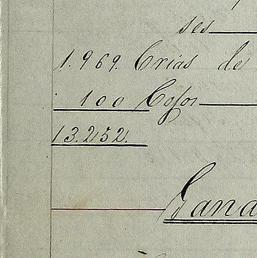 ses
1.969. Crias de
100 Cojos
13.252.
Gana